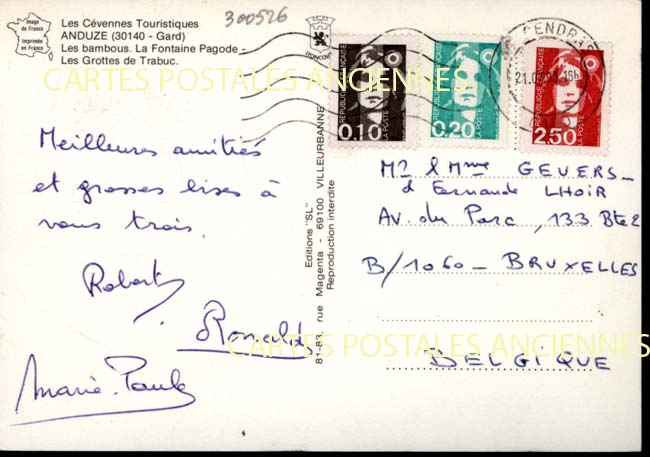 Les Cévennes Touristiques
ANDUZE (30140 - Gard)
Les bambous. La Fontaine Pagode -
Les Grottes de Trabuc.
Image
de France
Imprimée
en France
300526
CARTES POSTALES ANCIENNES
RÉPUBLIQUE FRANÇAISE
0.10
LA POSTE
RÉPUBLIQUE FRANÇAISE
0.20
LA POSTE
RÉPUBLIQUE FRANÇAISE
2.50
LA POSTE
16h
Meilleures amitiés
et grosses bises à
vous trois.
Robert
Ronald
Marie-Paule
Editions "SL"
81-83, rue Magenta - 69100 VILLEURBANNE
Reproduction interdite
Mr & Mme GEVERS -
d Fernande LHOIR
Av. du Parc, 133 Bte 2
B/1060 - BRUXELLES
CARTES POSTALES ANCIENNES
BELGIQUE